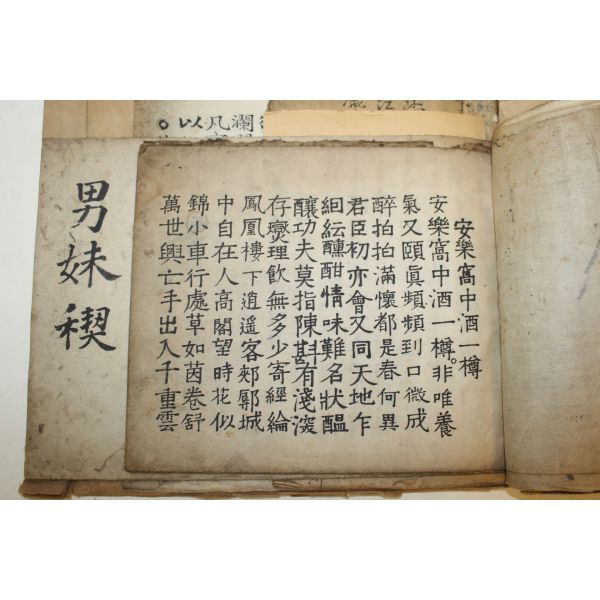 安樂窩中酒一樽
安樂窩中酒一樽。非唯養
氣又頤眞頻頻到口微成
醉拍拍滿懷都是春何異
君臣初亦會又同天地乍
絪紜醺酣情味難名狀醞
釀功夫莫指陳斟有淺深
存爕理飮無多少寄經綸
鳳凰樓下逍遥客郟鄏城
中自在人高閣望時花似
錦小車行處草如茵卷舒
萬世興亡手出入千重雲
男妹稧
瀾
凡
以